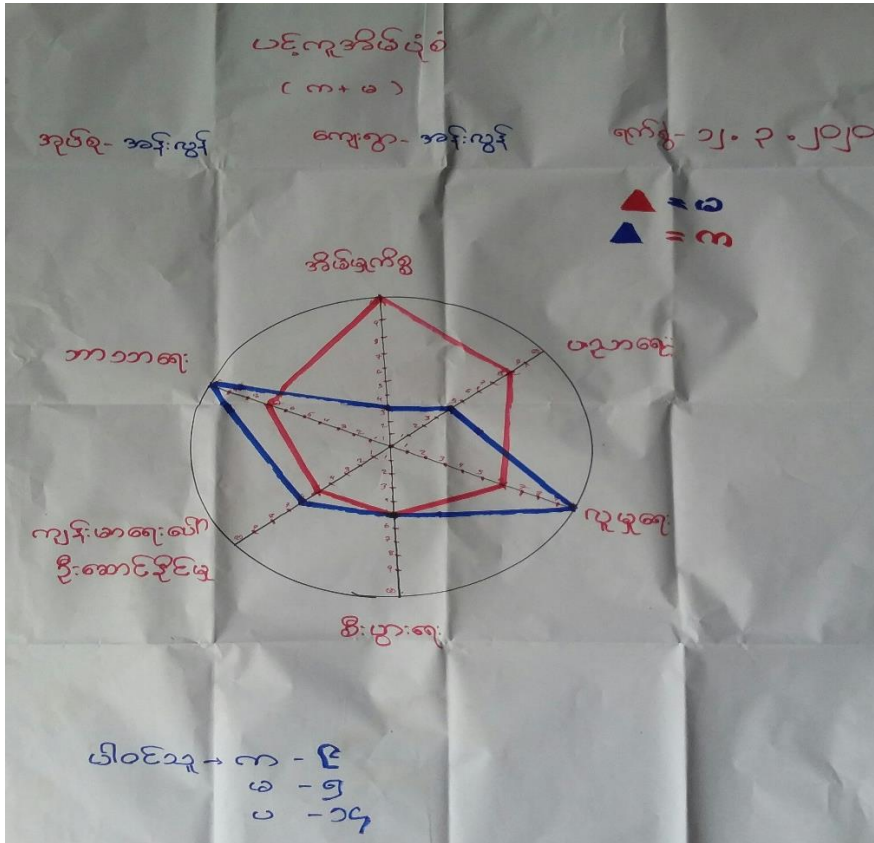 ပင့်ကူအိမ်ပုံစံ
( ကျ + မ )
အုပ်စု - အန်းလွန် ကျေးရွာ - အန်းလွန် ရက်စွဲ - ၁၂. ၃. ၂၀၂၀
= မ
= ကျ
အိမ်မှုကိစ္စ
ဘာသာရေး ပညာရေး
လူမှုရေး
ကျန်းမာရေးပေါ်
ဦးဆောင်နိုင်မှု
စီးပွားရေး
ပါဝင်သူ → ကျ - ၉
မ - ၅
ပ - ၁၄